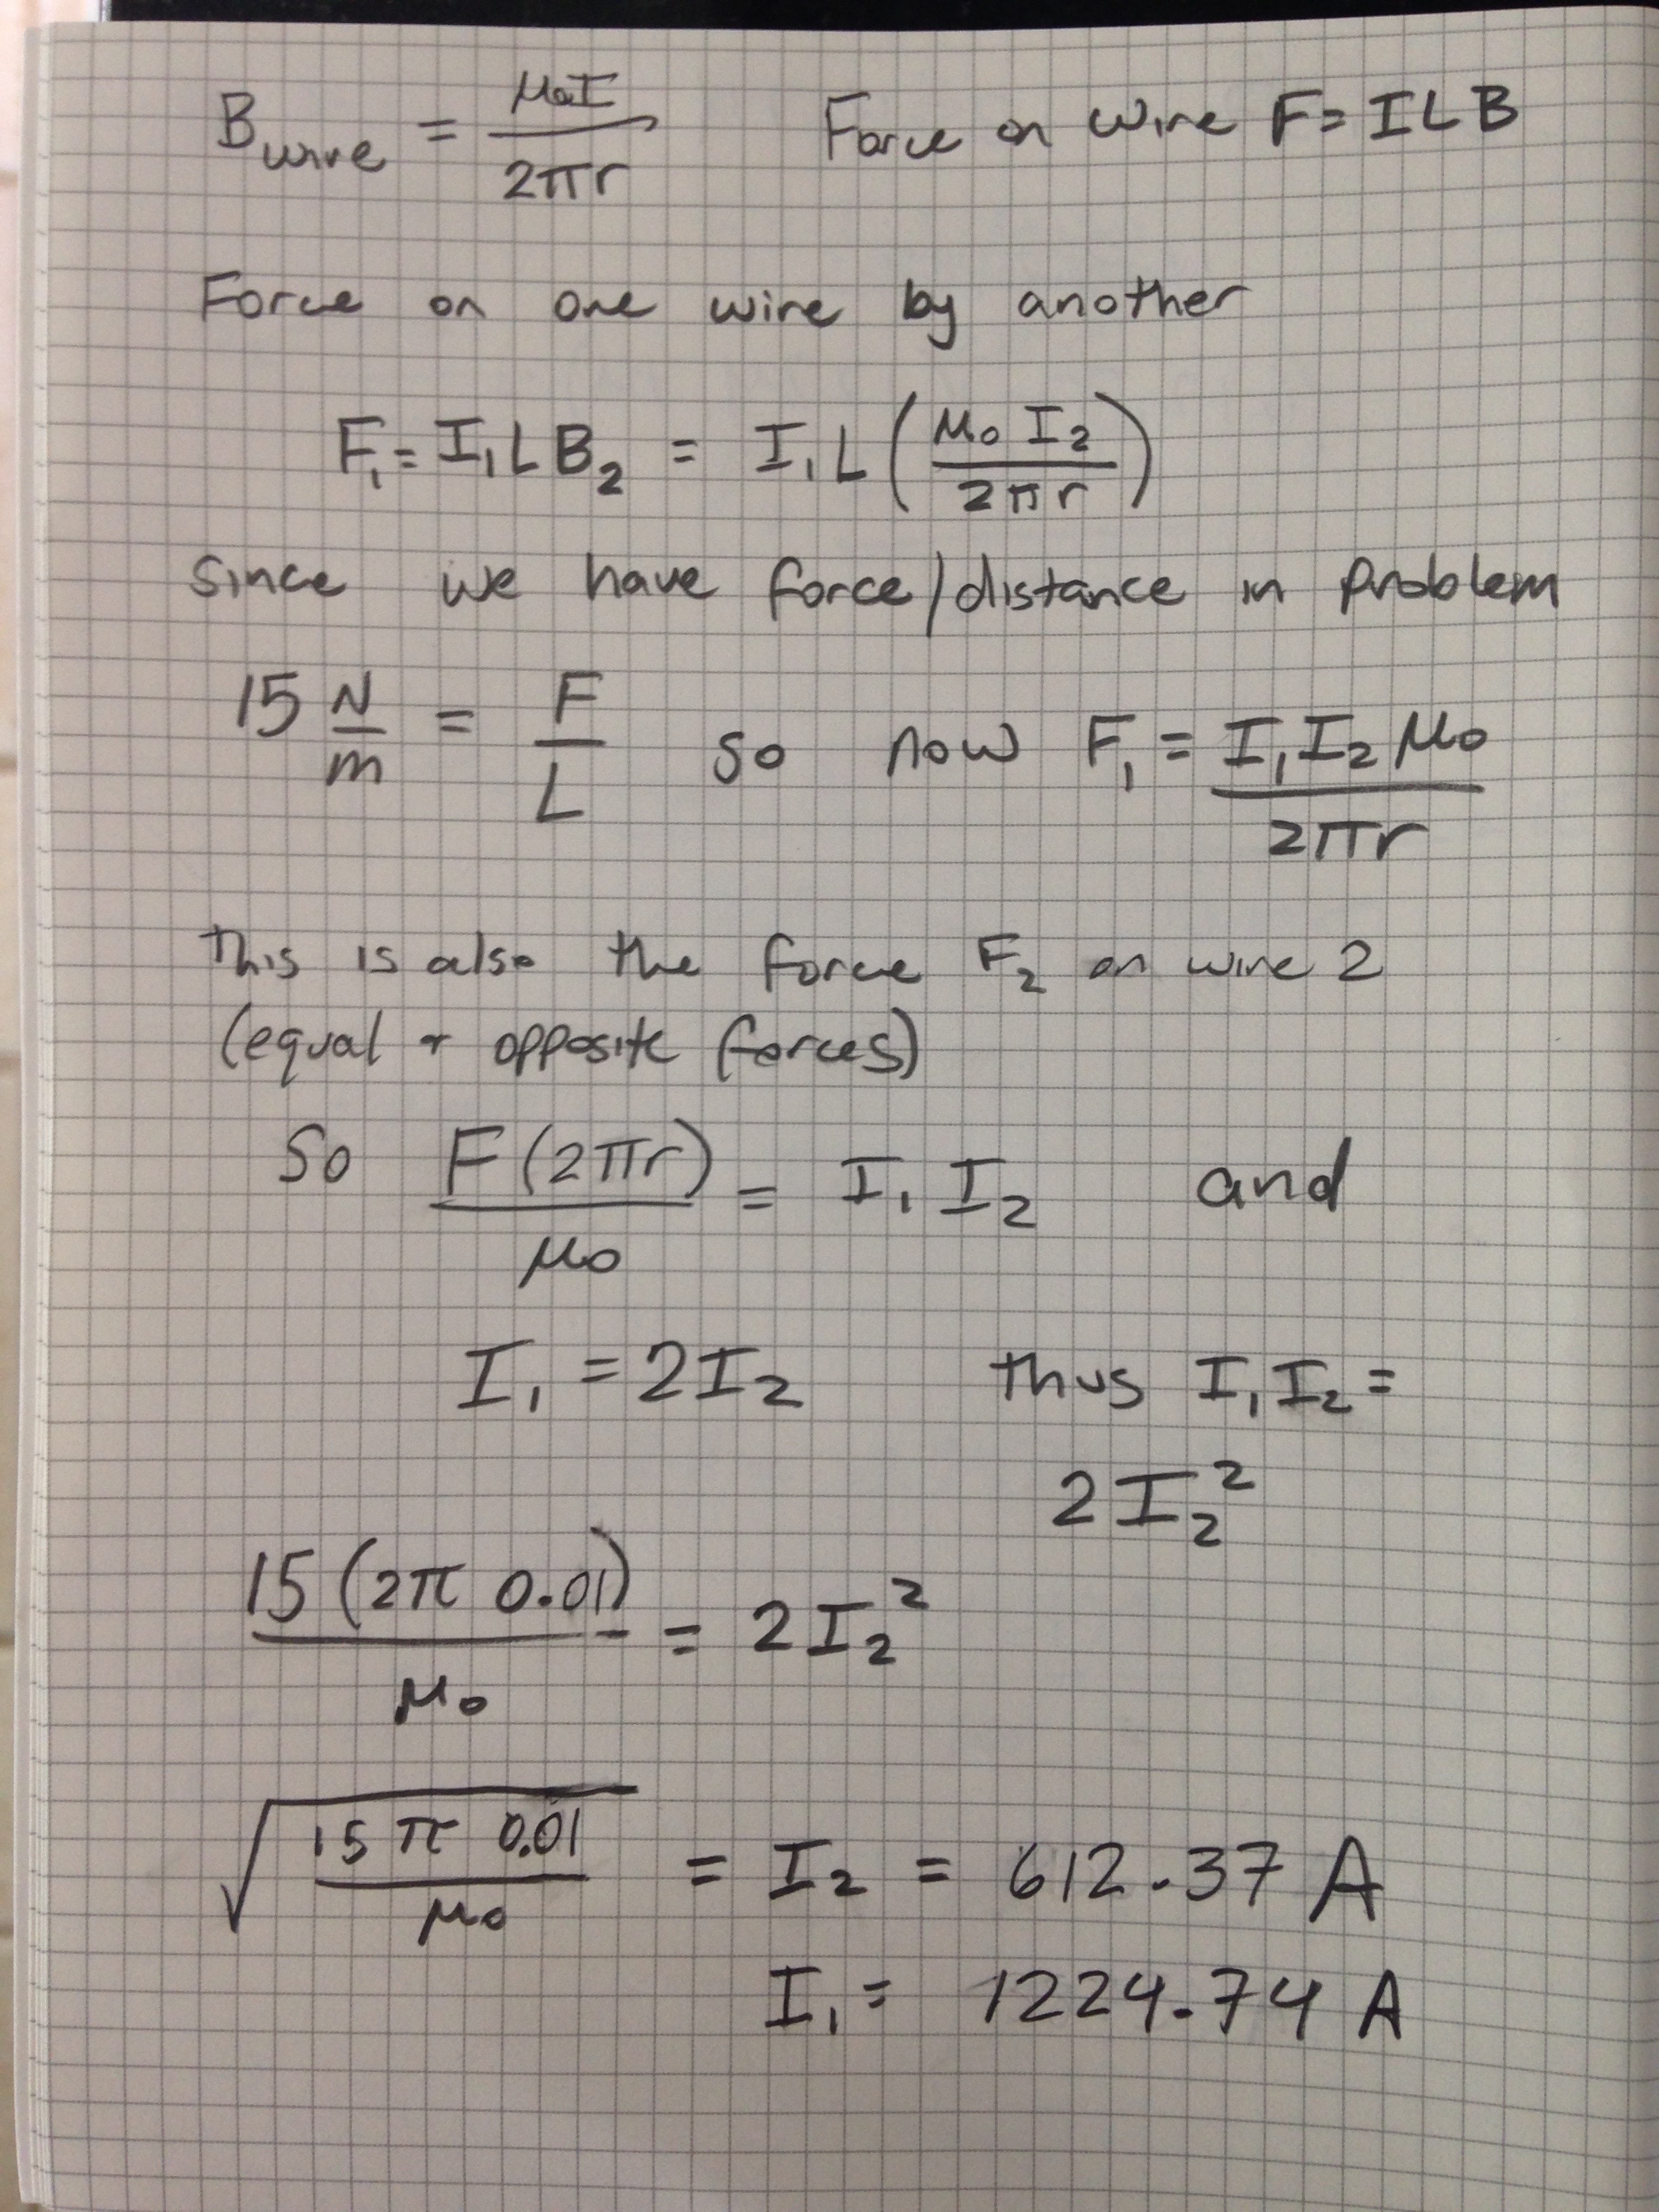 B_wire = μ₀I / 2πr    Force on wire F = ILB
Force on one wire by another
F₁ = I₁LB₂ = I₁L(μ₀I₂ / 2πr)
since we have force/distance in problem
15 N/m = F/L so now F₁ = I₁I₂μ₀ / 2πr
This is also the force F₂ on wire 2
(equal + opposite forces)
So F(2πr) / μ₀ = I₁I₂ and
I₁ = 2I₂ thus I₁I₂ =
2I₂²
15(2π 0.01) / μ₀ = 2I₂²
√(15π 0.01 / μ₀) = I₂ = 612.37 A
I₁ = 1224.74 A